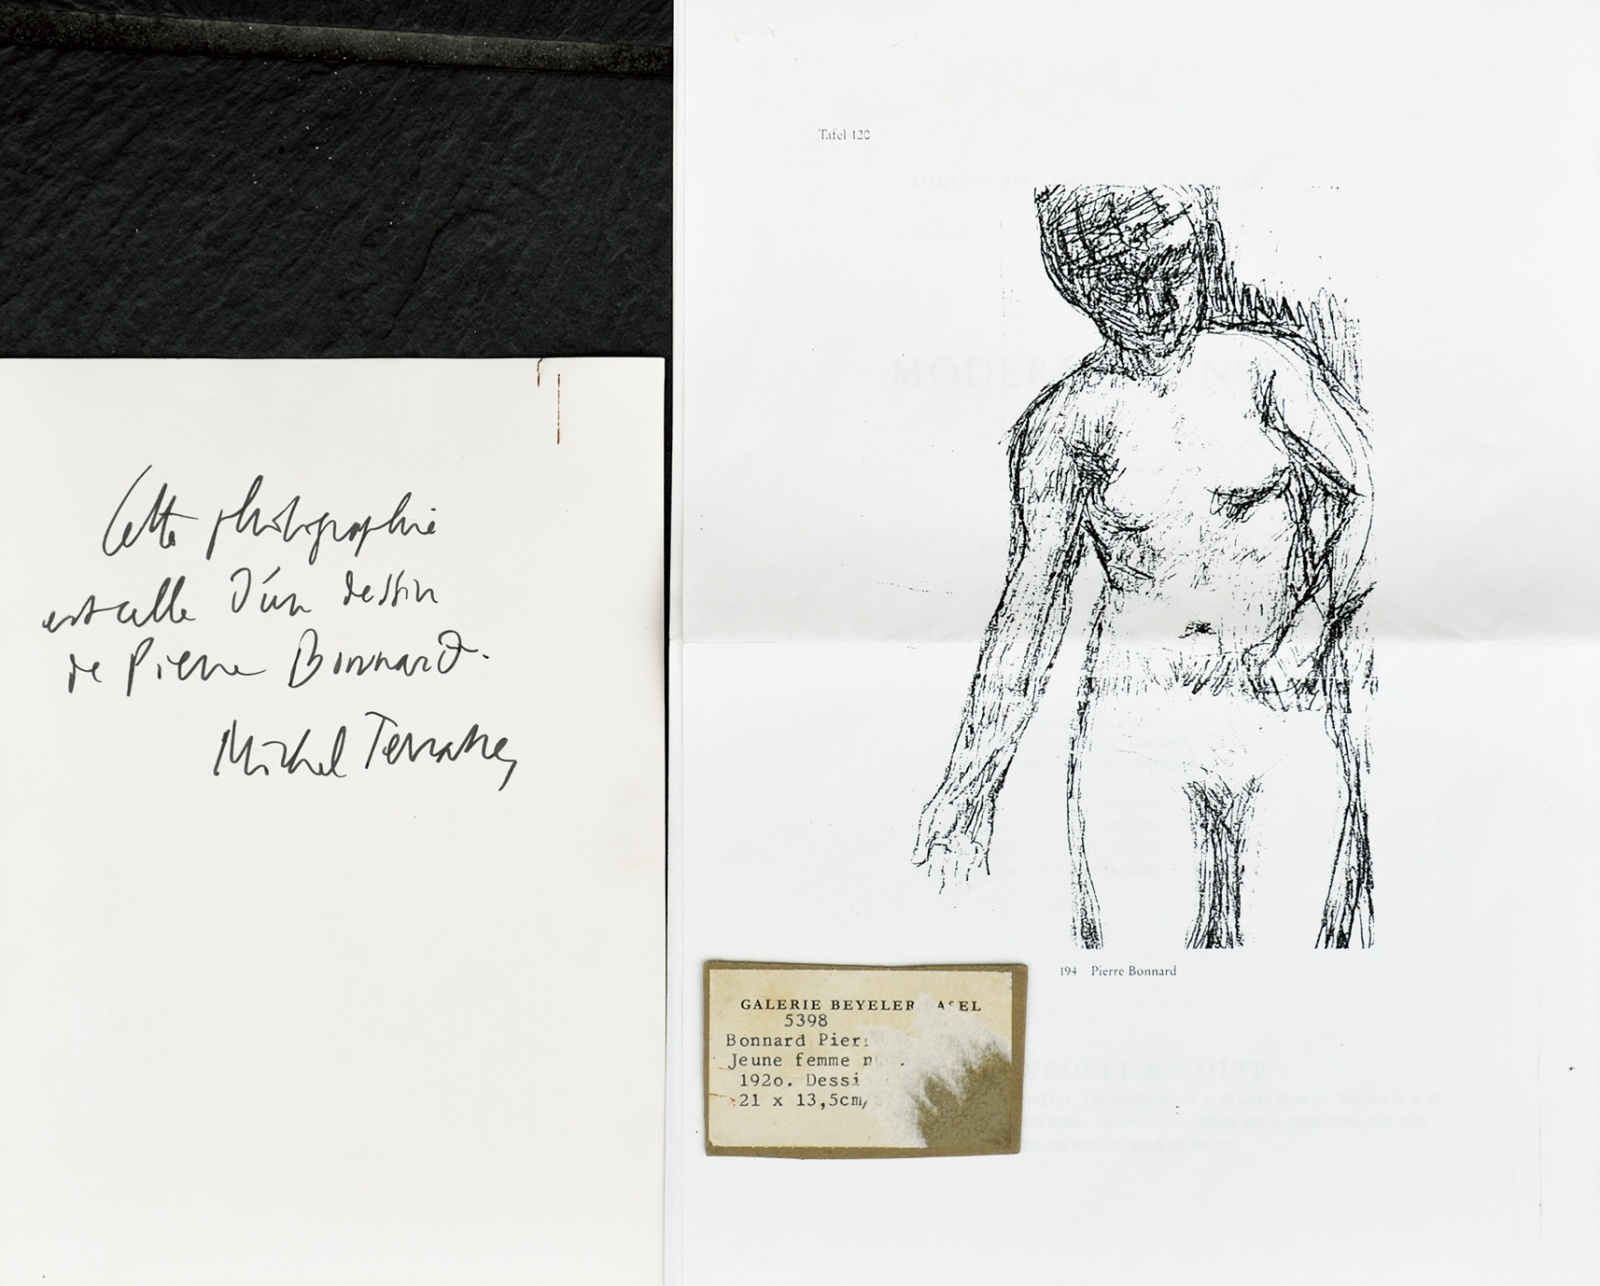 Cette photographie
est celle d'un dessin
de Pierre Bonnard.
Michel Terrasse
Tafel 120
194 Pierre Bonnard
GALERIE BEYELER BASEL
5398
Bonnard Pier
Jeune femme n
1920. Dessi
21 x 13,5cm/